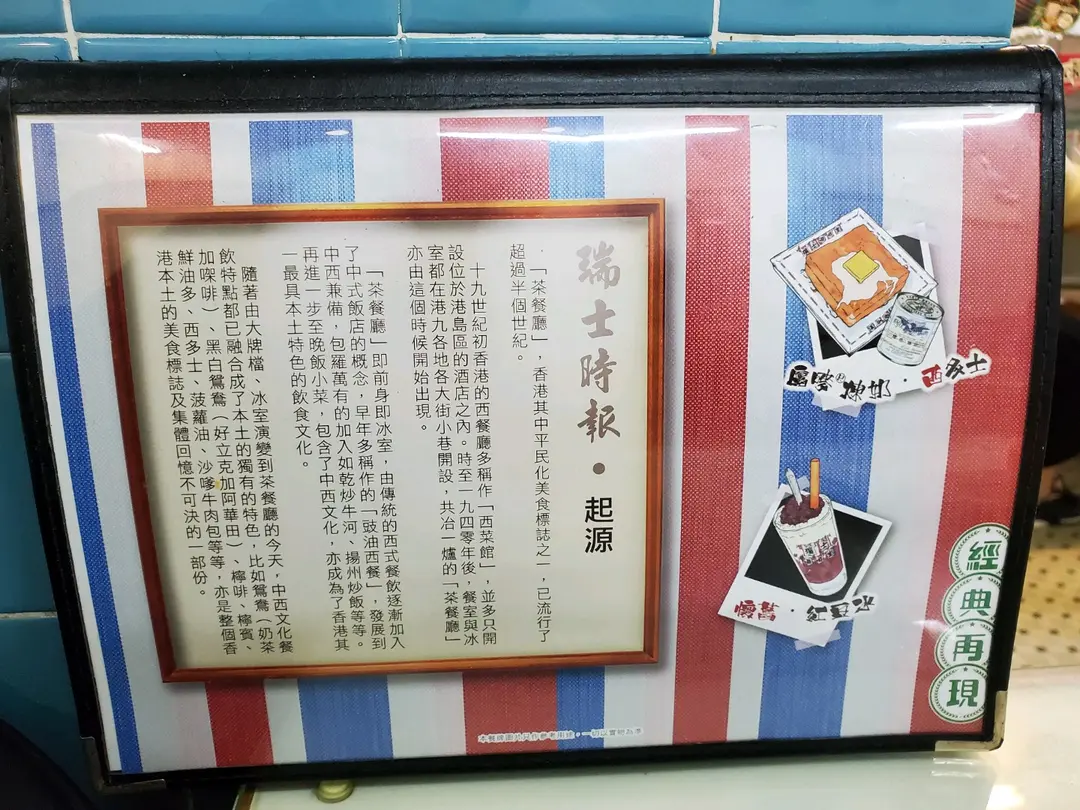 瑞士時報•起源
「茶餐廳」,香港其中平民化美食標誌之一,已流行了
超過半個世紀。
十九世紀初香港的西餐廳多稱作「西菜館」,並多只開
設位於港島區的酒店之內。時至一九四零年後,餐室與冰
室都在港九各地各大街小巷開設,共冶一爐的「茶餐廳」
亦由這個時候開始出現。
「茶餐廳」即前身即冰室,由傳統的西式餐飲逐漸加入
了中式飯店的概念,早年多稱作的「豉油西餐」,發展到
中西兼備,包羅萬有的加入如乾炒牛河、揚州炒飯等等。
再進一步至晚飯小菜,包含了中西文化,亦成為了香港其
一最具本土特色的飲食文化。
隨著由大牌檔、冰室演變到茶餐廳的今天,中西文化餐
飲特點都已融合成了本土的獨有的特色,比如鴛鴦(奶茶
加㗎啡)、黑白鴛鴦(好立克加阿華田)、檸啡、檸賓、
鮮油多、西多士、菠蘿油、沙嗲牛肉包等等,亦是整個香
港本土的美食標誌及集體回憶不可決的一部份。
煉奶・西多士
懷舊・紅豆冰
經典再現
本餐牌圖片只作參考用途,一切以實物為準